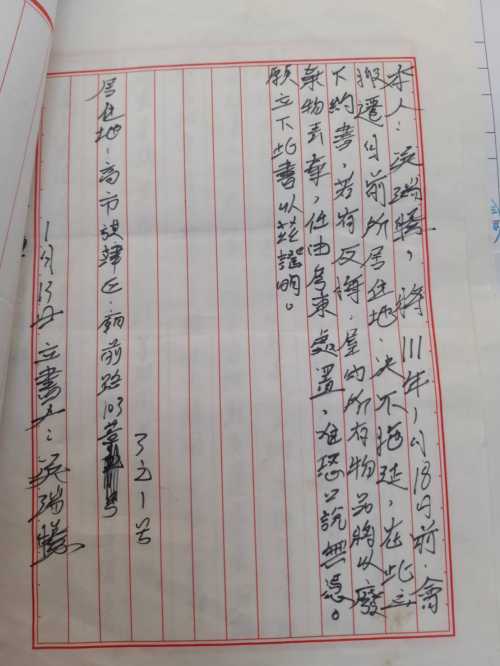 本人：洪瑞騰，將111年1月18日前，會
搬遷目前所居住地，決不拖延，在此立
下約書，若有反悔，屋內所有物品將以廢
棄物丟棄，任由房東處置，唯恐口說無憑。
願立下此書以茲證明。
居住地：高市旗津區廟前路103巷
之1号
1月13日 立書人：洪瑞騰